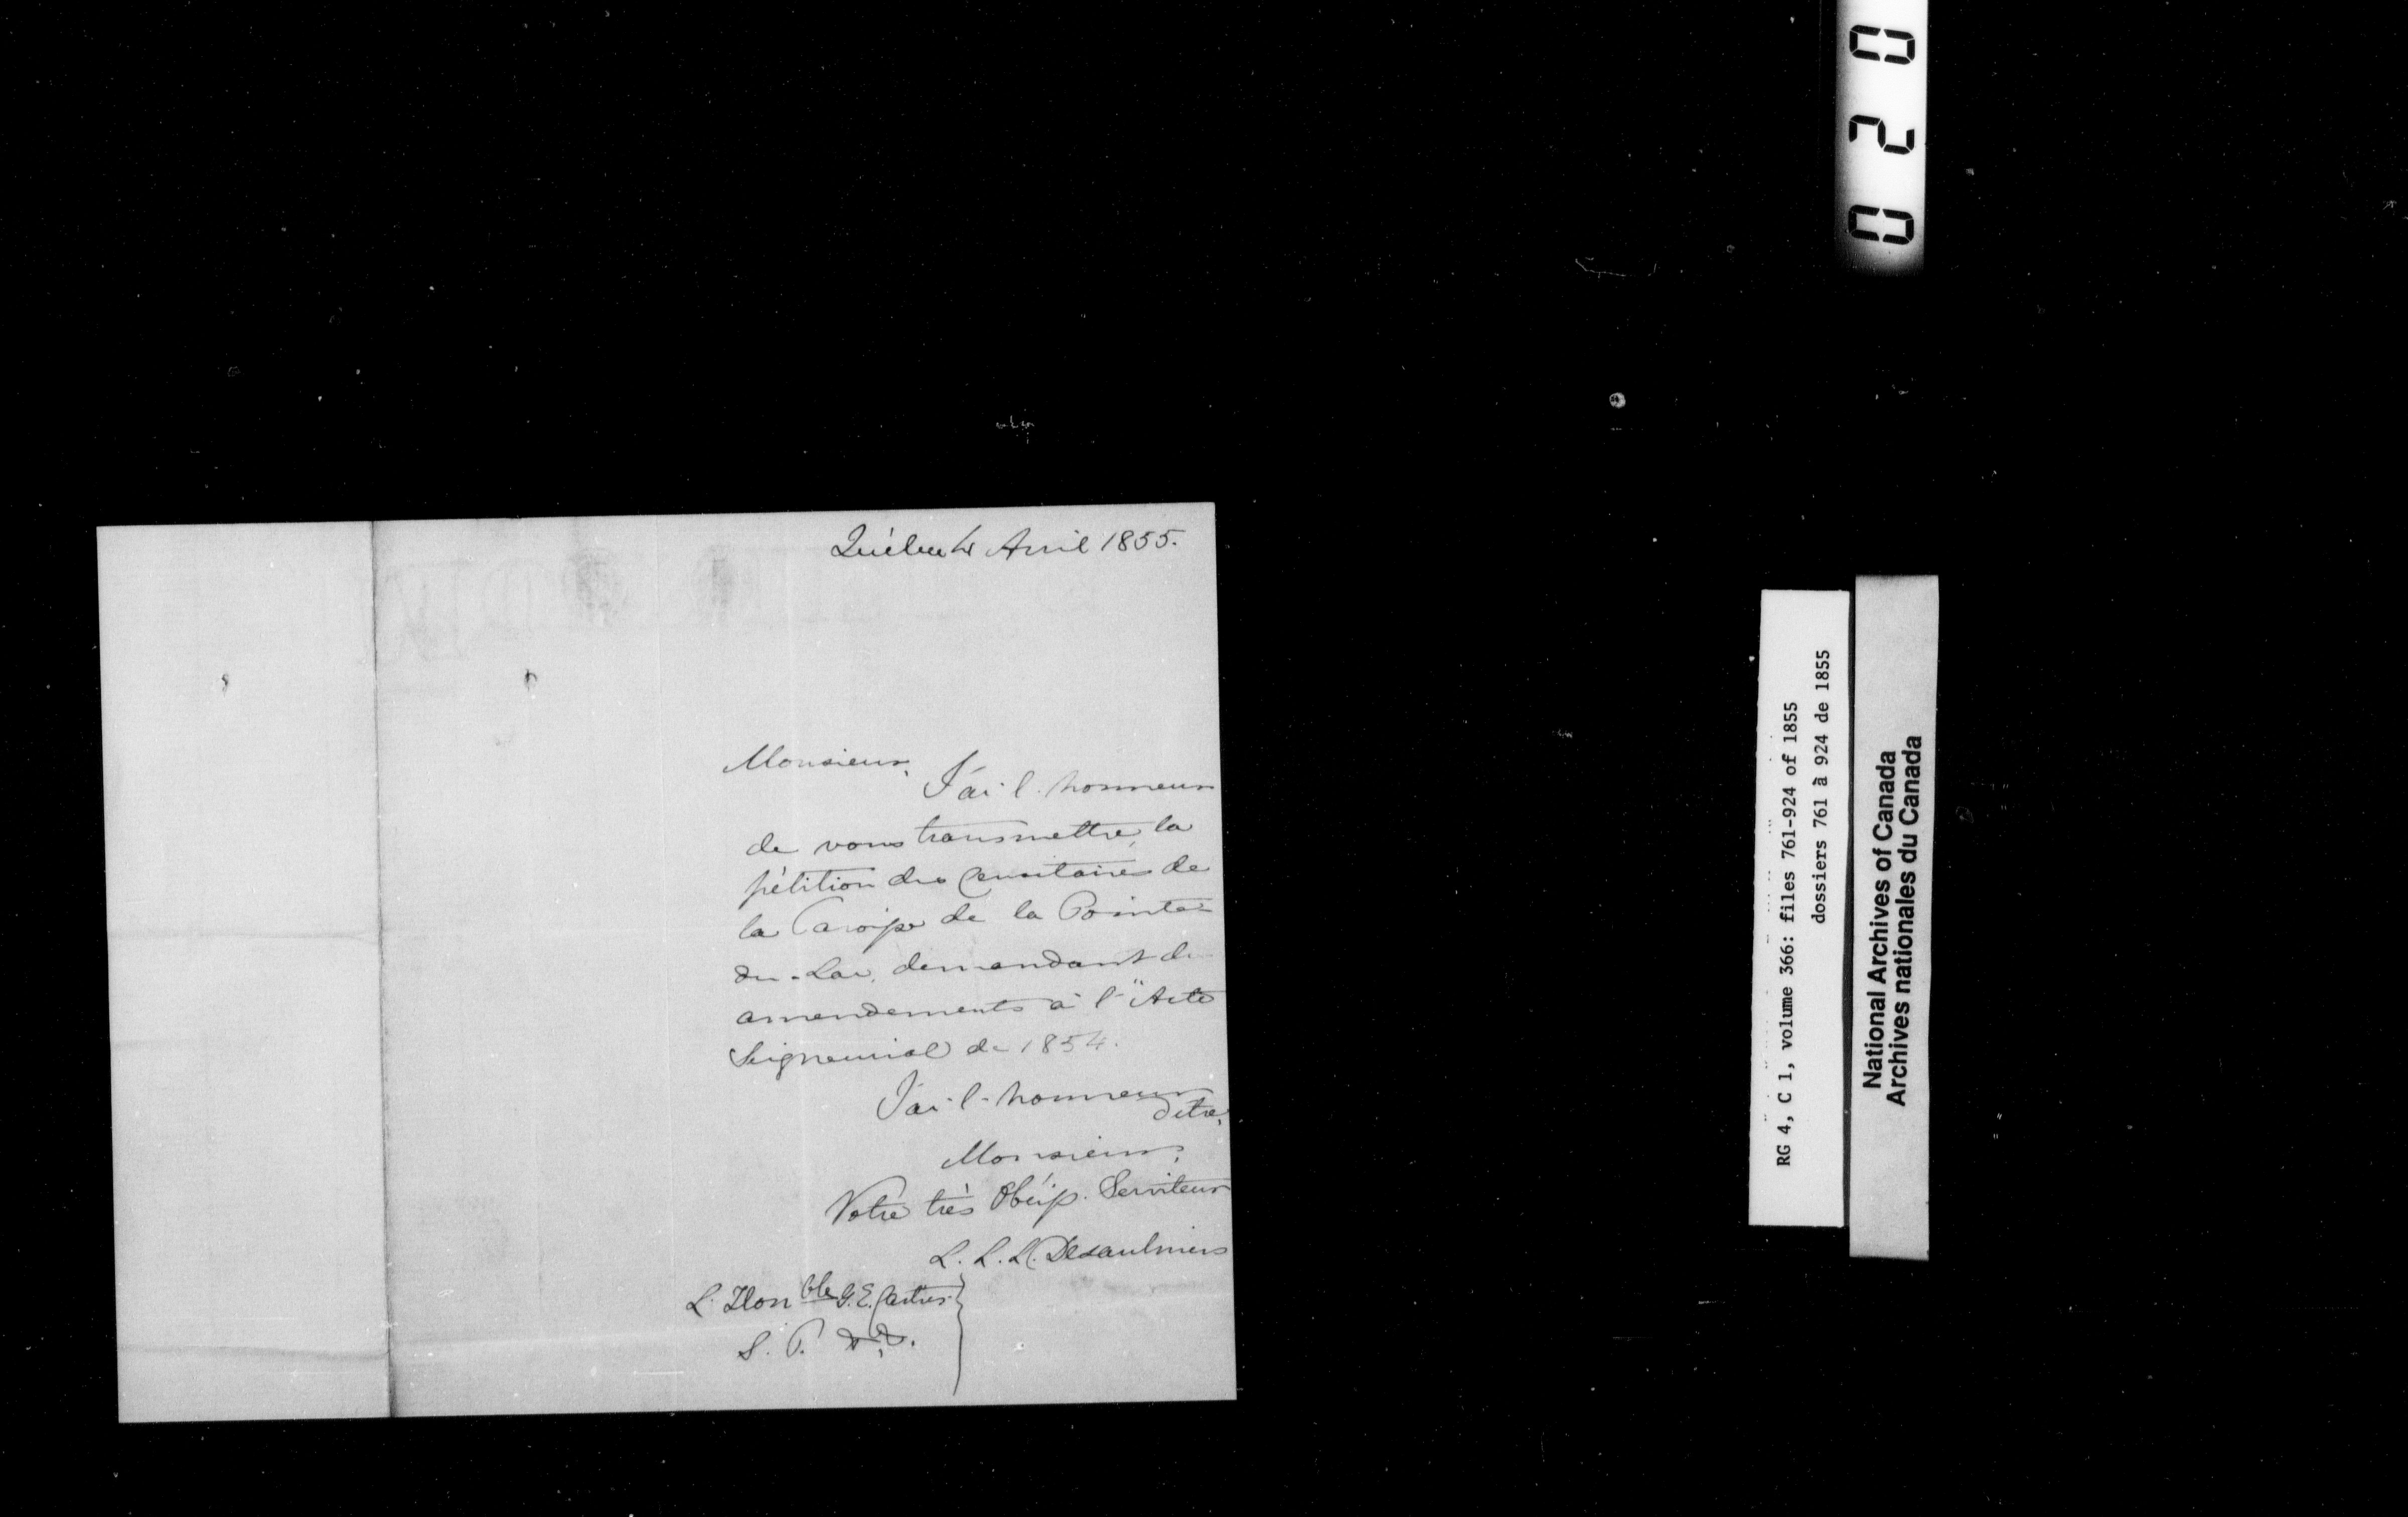 Québec 4 Avril 1855.
Monsieur,
J'ai l'honneur
de vous transmettre, la
pétition des Censitaires de
la Paroisse de la Pointe
du-Lac, demandant des
amendements à l'"Acte
Seigneurial de 1854.
J'ai l'honneur
d'etre,
Monsieur,
Votre très Obéiss. Serviteur
L. L. L. Desaulniers
L'Honble G. E. Cartier
S. P.
020
RG 4, C 1, volume 366: files 761-924 of 1855
dossiers 761 à 924 de 1855
National Archives of Canada
Archives nationales du Canada